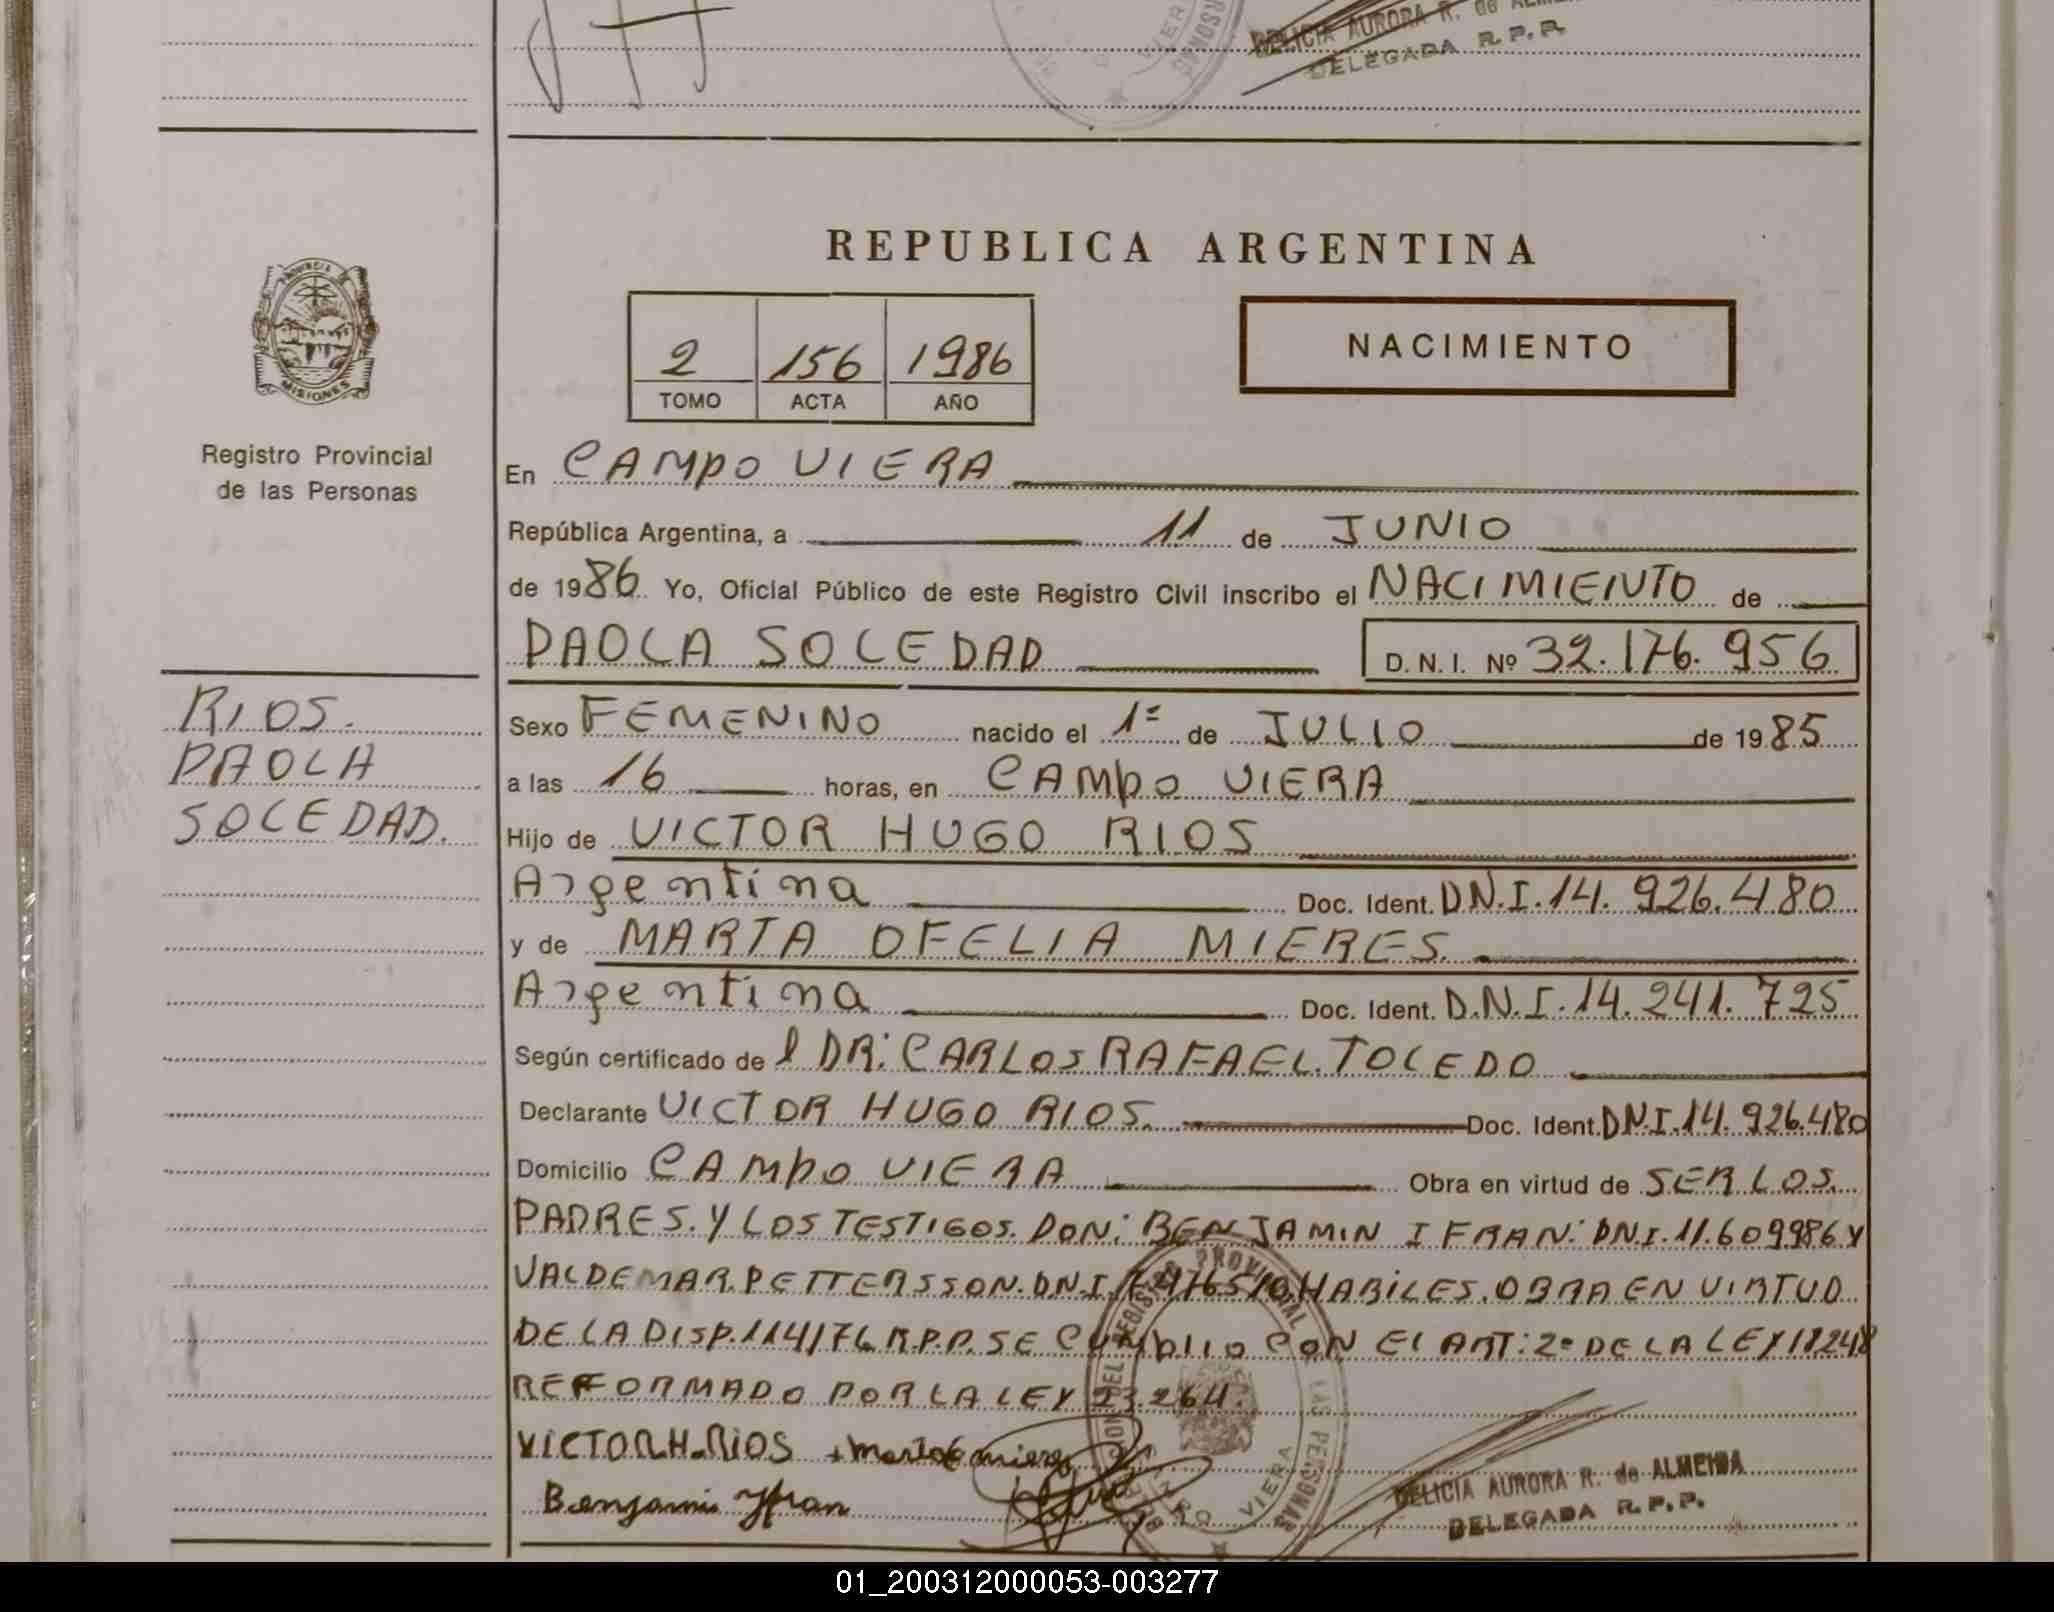 DELICIA AURORA R. de
DELEGADA R.P.P.
REPUBLICA ARGENTINA
PROVINCIA
MISIONES
2 156 1986
TOMO ACTA AÑO
NACIMIENTO
Registro Provincial
de las Personas
En CAMPO VIERA
República Argentina, a 11 de JUNIO
de 1986. Yo, Oficial Público de este Registro Civil inscribo el NACIMIENTO de
PAOLA SOLEDAD D. N. I. Nº 32.176.956
RIOS.
PAOLA
SOLEDAD.
Sexo FEMENINO nacido el 1º de JULIO de 1985
a las 16 horas, en CAMPO VIERA
Hijo de VICTOR HUGO RIOS
Argentina Doc. Ident. DN.I.14.926.480
y de MARTA OFELIA MIERES.
Argentina Doc. Ident. D.N.I.14.241.725
Según certificado de l DR: CARLOS RAFAEL.TOLEDO
Declarante VICTOR HUGO RIOS. Doc. Ident. DN.I.14.926.480
Domicilio CAMPO VIERA Obra en virtud de SER LOS.
PADRES.Y LOS TESTIGOS. DON: BENJAMIN IFRAN: DNI.11.609986 Y
VALDEMAR.PETTERSSON.DN.I. HABILES.OBRA EN VIRTUD
DE LA DISP.114/76 R.P.P. SE CUMPLIO CON El ART: 2º DE LA LEY 18248
REFORMADO POR LA LEY 23.264.
VICTOR H. RIOS + Marta mieres
Benjamin Yfran
DELICIA AURORA R. de ALMEIDA
DELEGADA R.P.P.
01_200312000053-003277